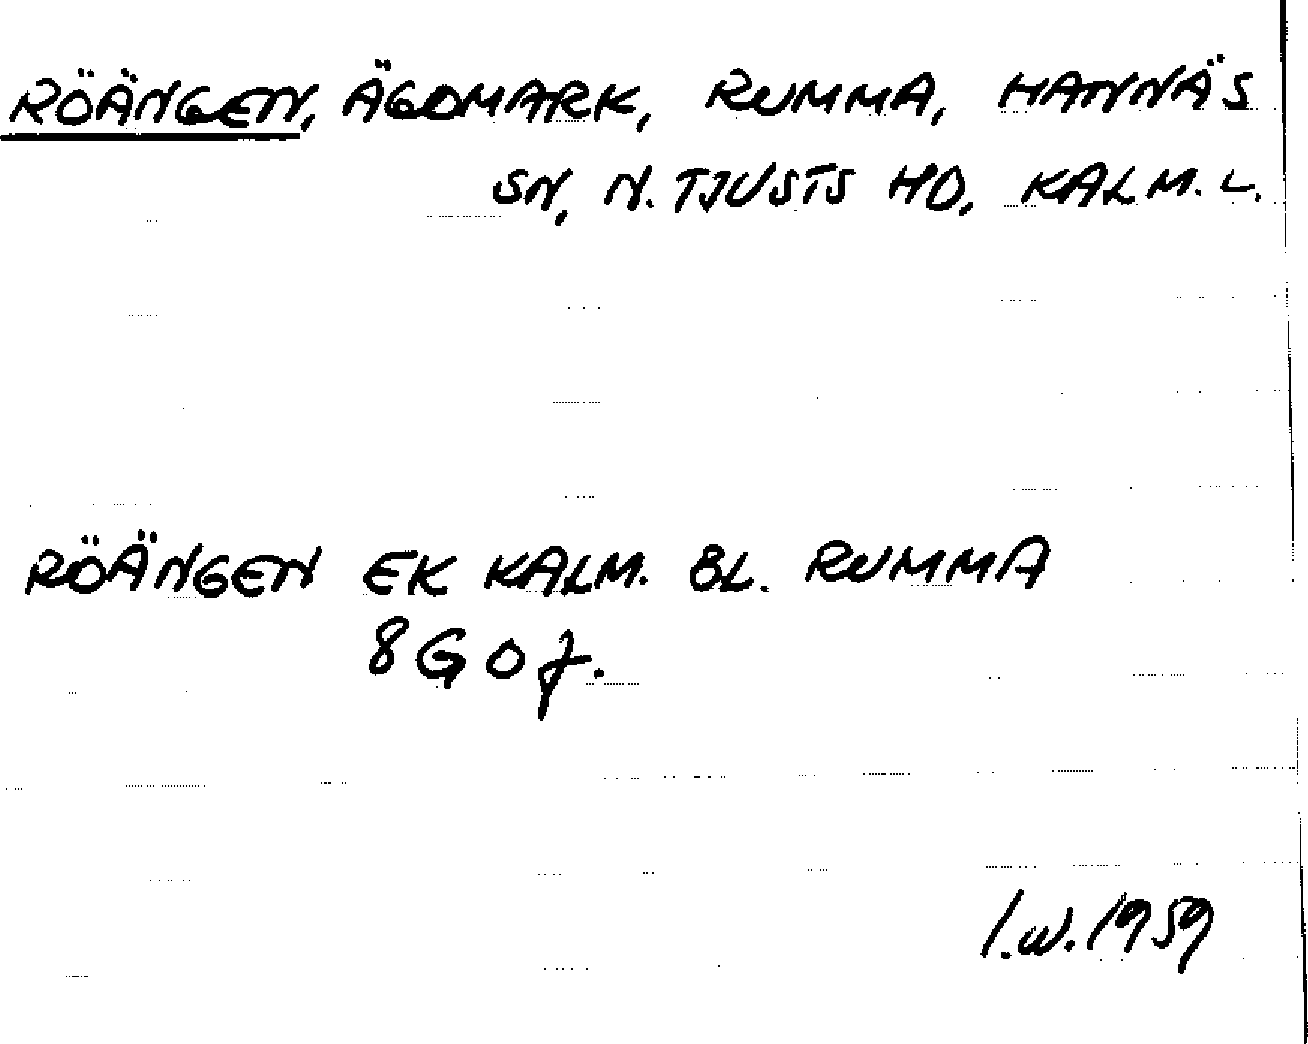 RÖÄNGEN, ÄGOMARK, RUMMA, HANNÄS
SN, N. TJUSTS HD, KALM. L.
RÖÄNGEN EK KALM. BL. RUMMA
8G0f.
I.W. 1959